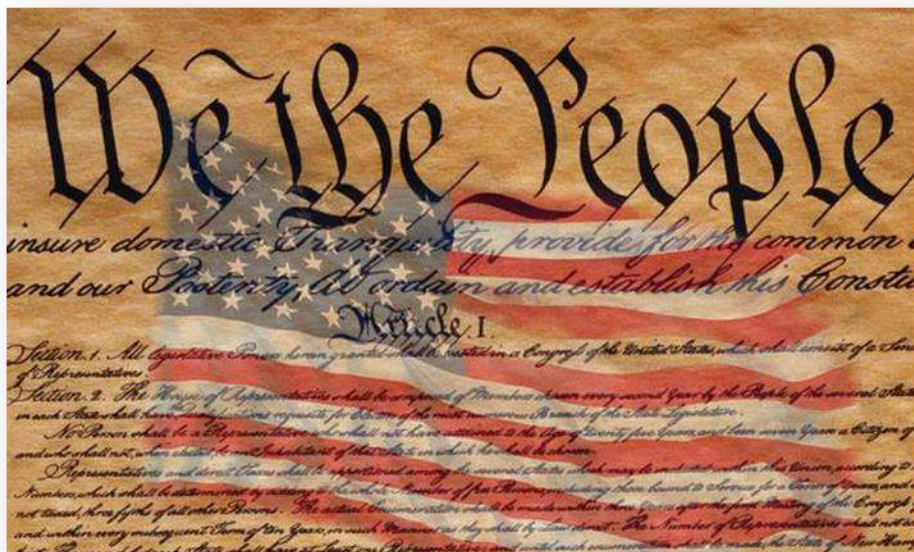 We the People
insure domestic Tranquility, provide for the common
and our Posterity, do ordain and establish this Constit
Article. I.
Section. 1. All legislative Powers herein granted shall be vested in a Congress of the United States, which shall consist of a Sena
of Representatives
Section. 2. The House of Representatives shall be composed of Members chosen every second Year by the People of the several States
in each State shall have the Qualifications requisite for Electors of the most numerous Branch of the State Legislature.
No Person shall be a Representative who shall not have attained to the Age of twenty five Years, and been seven Years a Citizen of
and who shall not, when elected, be an Inhabitant of that State in which he shall be chosen.
Representatives and direct Taxes shall be apportioned among the several States which may be included within this Union, according to
Numbers, which shall be determined by adding to the whole Number of free Persons, including those bound to Service for a Term of Years, and
not taxed, three fifths of all other Persons. The actual Enumeration shall be made within three Years after the first Meeting of the Congress
and within every subsequent Term of ten Years, in such Manner as they shall by Law direct. The Number of Representatives shall not
until such enumeration shall be made, the State of New Hamp